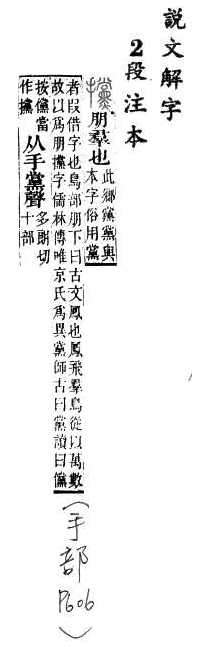 說文解字
2段注本
攩 朋羣也 此鄉黨黨與
本字俗用黨
者叚借字也鳥部朋下曰古文鳳也鳳飛羣鳥從以萬數
故以爲朋攩字儒林傳唯京氏爲異黨師古曰黨讀曰儻
按儻當
作攩
从手黨聲
多朗切
十部
(手部 P606)